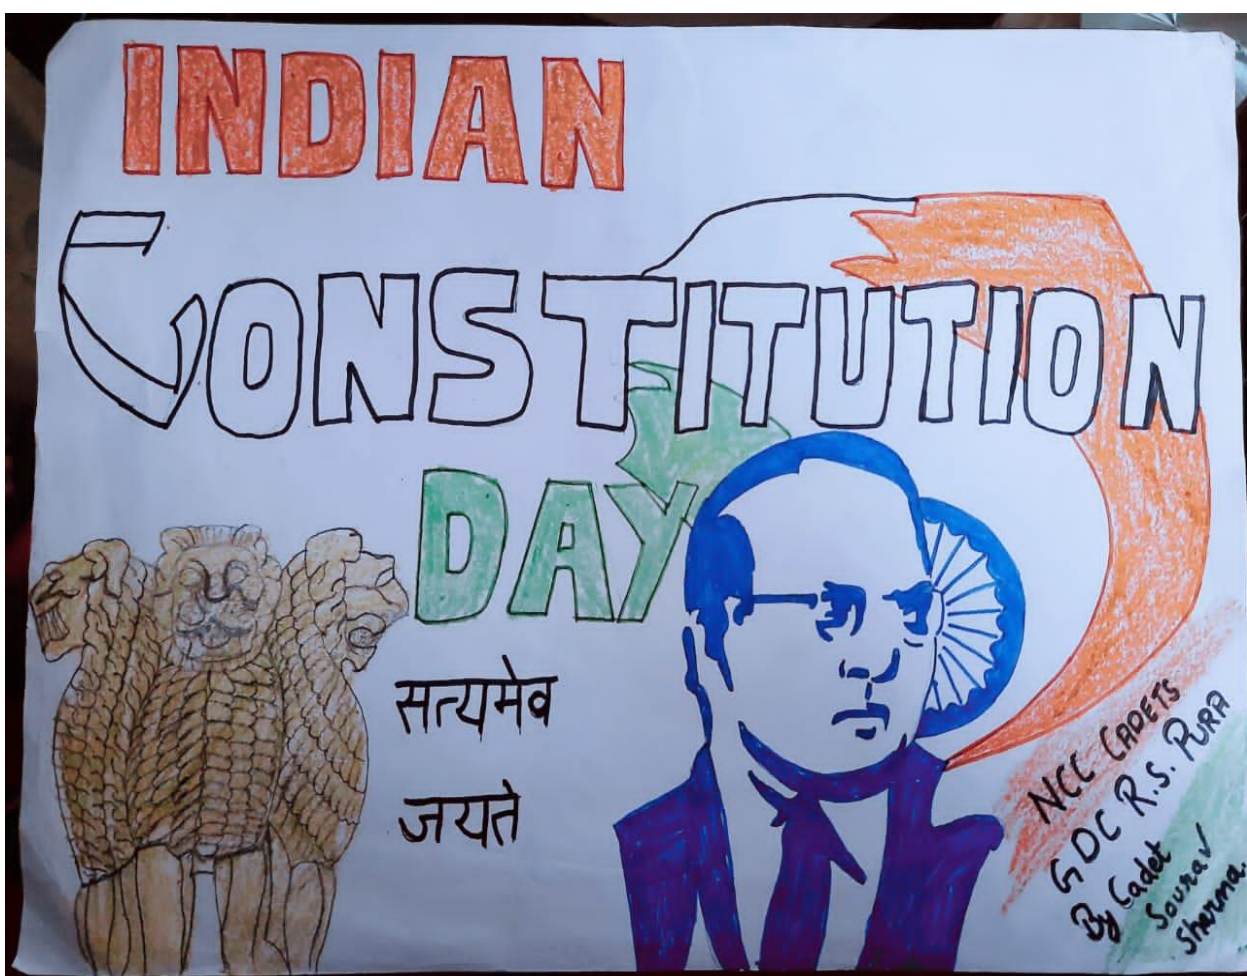 INDIAN
CONSTITUTION
DAY
सत्यमेव
जयते
NCC CADETS
GDC R.S. PURA
By Cadet
Sourav
Sharma.